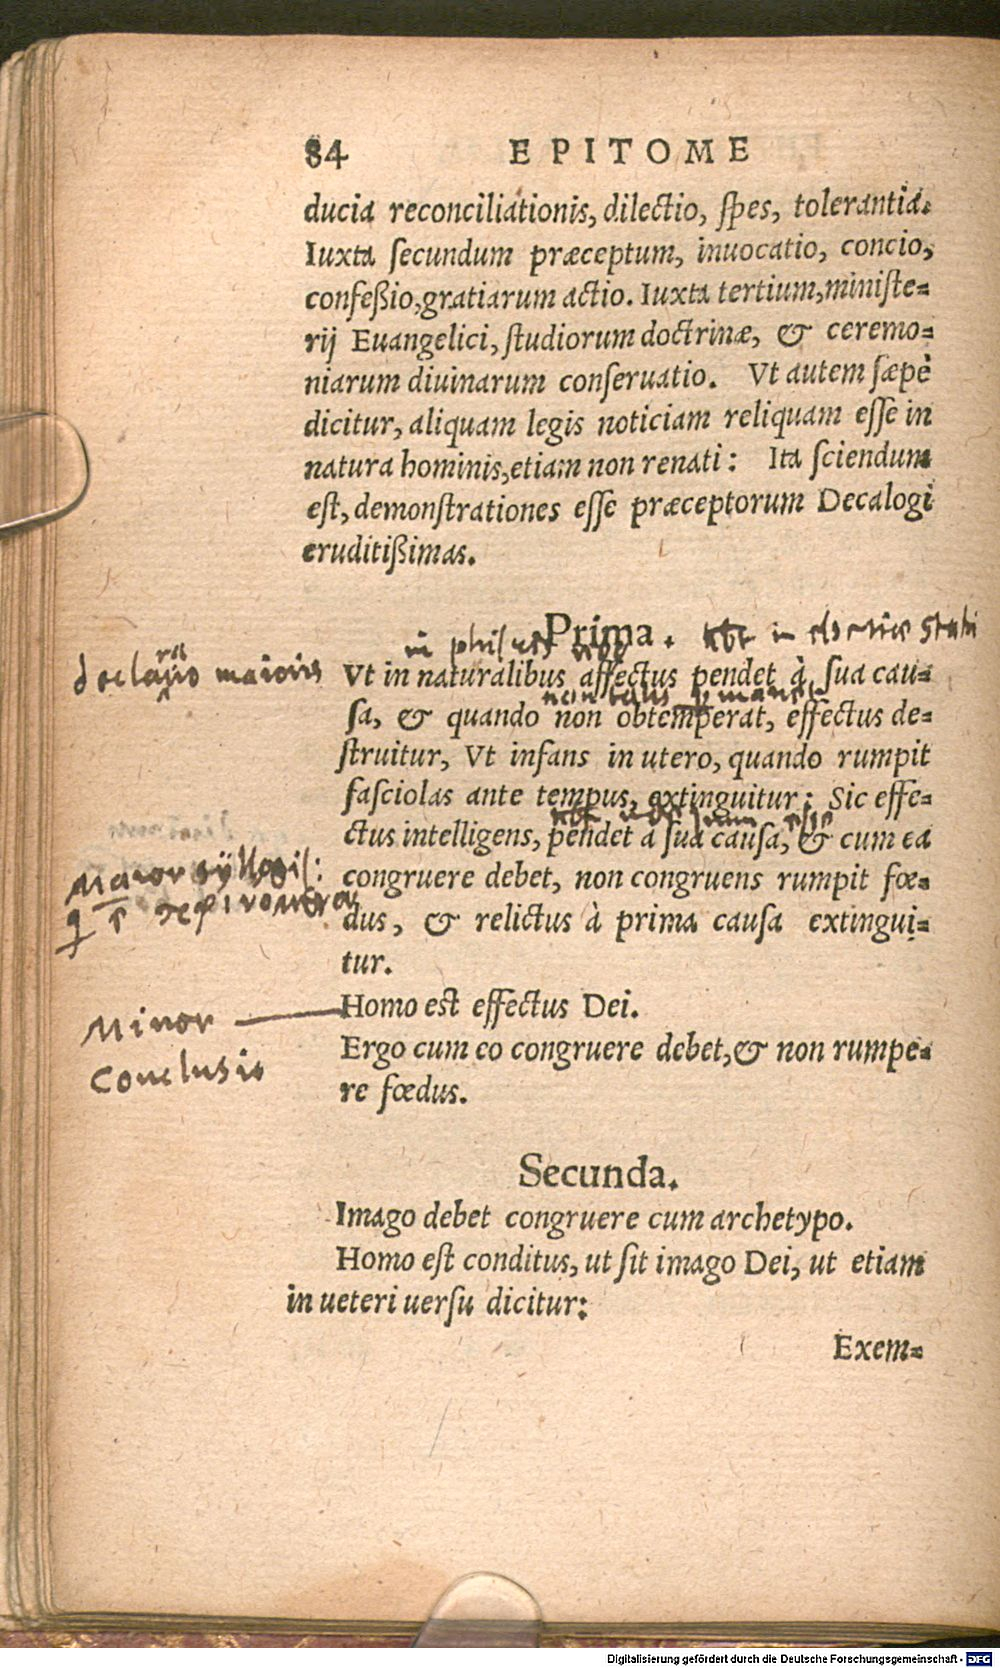 84 EPITOME
ducia reconciliationis, dilectio, ſpes, tolerantia.
Iuxta ſecundum præceptum, inuocatio, concio,
confeßio, gratiarum actio. Iuxta tertium, miniſte-
rij Euangelici, ſtudiorum doctrinæ, & ceremo-
niarum diuinarum conſeruatio. Vt autem ſæpè
dicitur, aliquam legis noticiam reliquam eſſe in
natura hominis, etiam non renati: Ita ſciendum
eſt, demonſtrationes eſſe præceptorum Decalogi
eruditißimas.
Prima.
declaratio maioris
Vt in naturalibus affectus pendet à ſua cau-
ſa, & quando non obtemperat, effectus de-
ſtruitur, Vt infans in utero, quando rumpit
faſciolas ante tempus, extinguitur: Sic effe-
ctus intelligens, pendet à ſua cauſa, & cum ea
Maior syllogiſ:
congruere debet, non congruens rumpit fœ-
dus, & relictus à prima cauſa extingui-
tur.
Minor
Homo eſt effectus Dei.
Conclusio
Ergo cum eo congruere debet, & non rumpe-
re fœdus.
Secunda.
Imago debet congruere cum archetypo.
Homo eſt conditus, ut ſit imago Dei, ut etiam
in ueteri uerſu dicitur:
Exem-
Digitalisierung gefördert durch die Deutsche Forschungsgemeinschaft - DFG